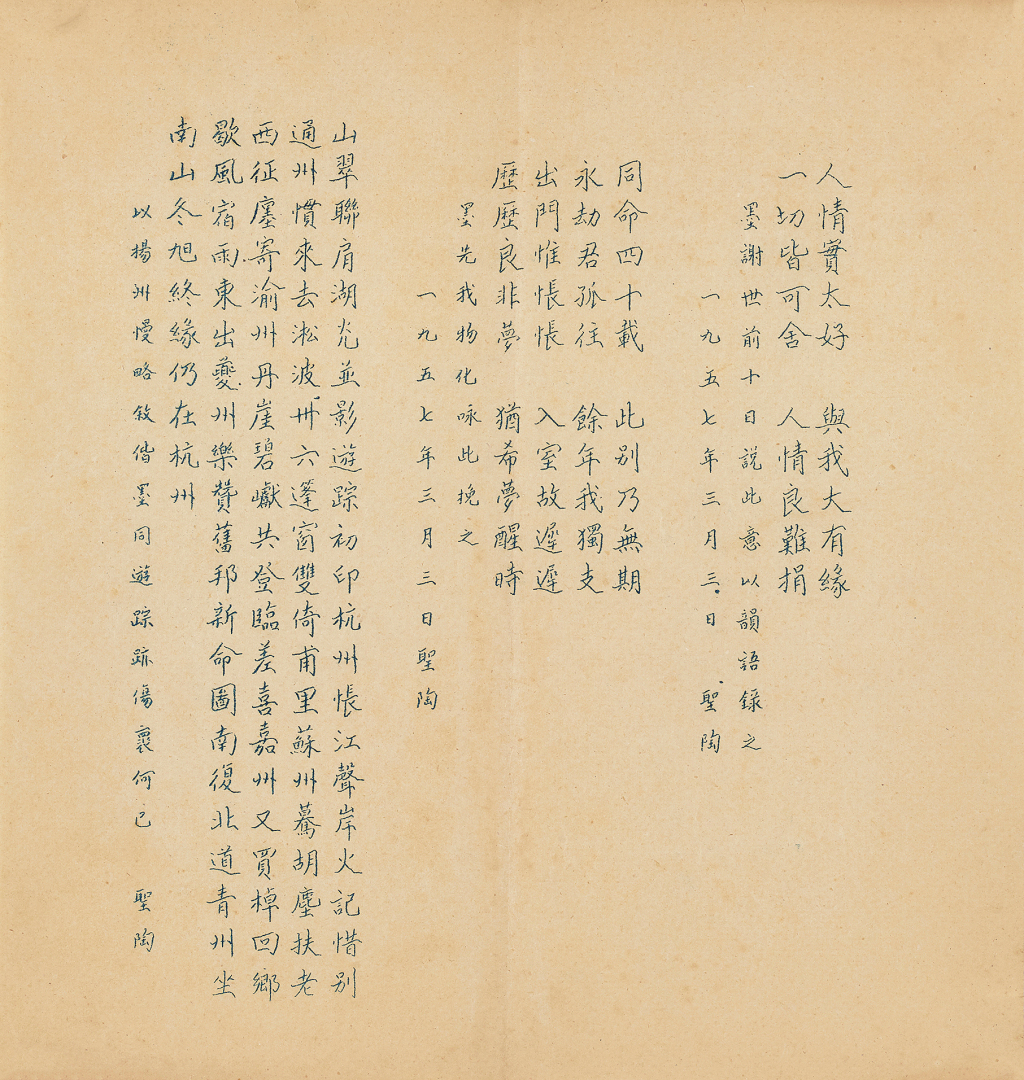 人情實太好　與我大有緣
一切皆可舍　人情良難捐
墨謝世前十日説此意以韻語錄之
一九五七年三月三日　聖陶
同命四十載　此別乃無期
永劫君孤往　餘年我獨支
出門惟悵悵　入室故遲遲
歷歷良非夢　猶希夢醒時
墨先我物化咏此挽之
一九五七年三月三日聖陶
山翠聯肩湖光並影遊踪初印杭州悵江聲岸火記惜別
通州慣來去淞波卅六篷窗雙倚甫里蘇州驀胡塵扶老
西征廛寄渝州丹崖碧巘共登臨差喜嘉州又買棹回鄉
歇風宿雨東出夔州樂贊舊邦新命圖南復北道青州坐
南山冬旭終緣仍在杭州
以揚州慢略敘偕墨同遊踪跡傷褱何已　聖陶